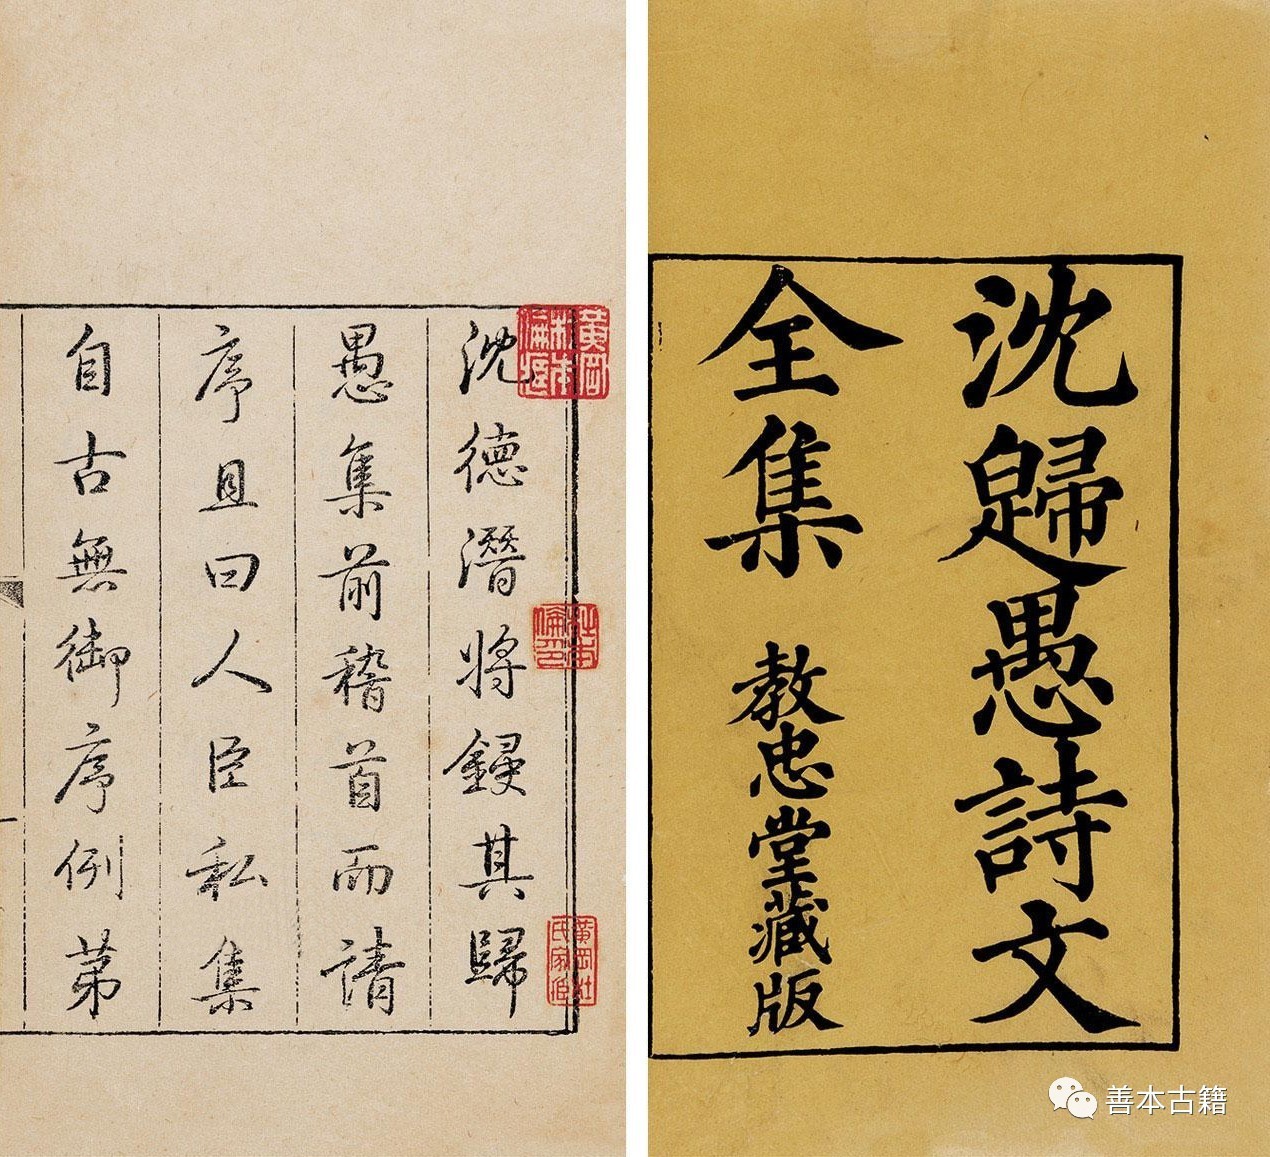 沈歸愚詩文
全集
教忠堂藏版
沈德潛將鋟其歸
愚集前稽首而請
序且曰人臣私集
自古無御序例第
善本古籍